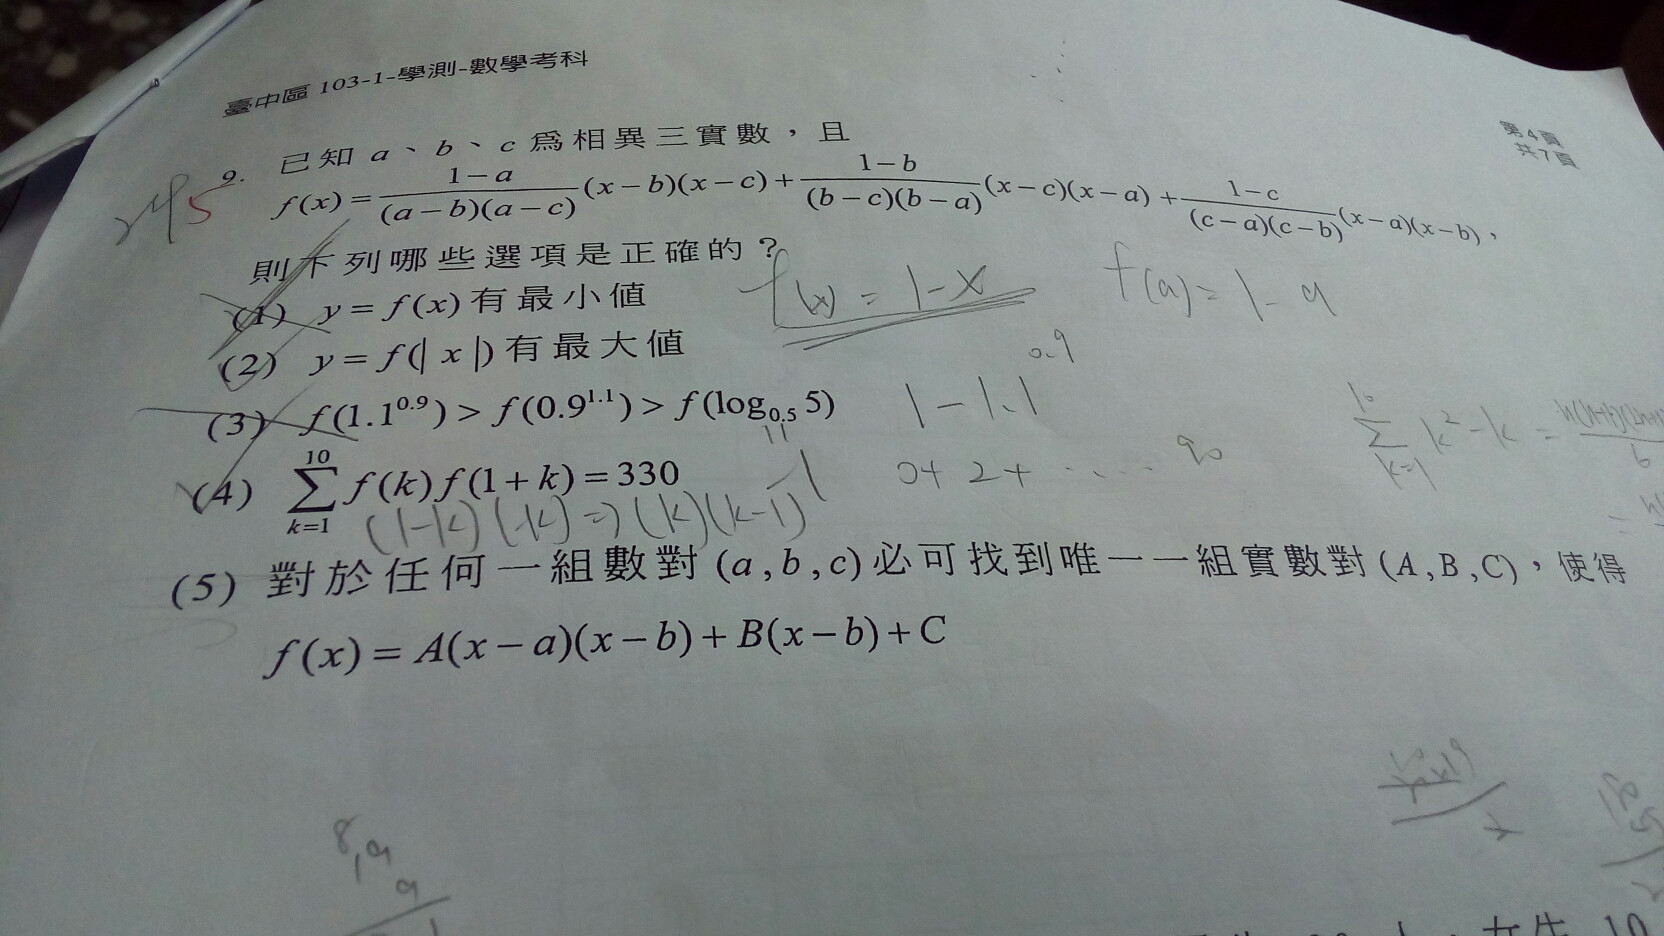 臺中區 103-1-學測-數學考科
第4頁
共7頁
9. 已知 a、b、c 為相異三實數，且
f(x) = \frac{1-a}{(a-b)(a-c)}(x-b)(x-c) + \frac{1-b}{(b-c)(b-a)}(x-c)(x-a) + \frac{1-c}{(c-a)(c-b)}(x-a)(x-b)，
245
則下列哪些選項是正確的？
f(x) = 1-x
f(a) = 1-a
(1) y = f(x) 有最小值
(2) y = f(|x|) 有最大值
(3) f(1.1^{0.9}) > f(0.9^{1.1}) > f(log_{0.5} 5)
1-1.1^{0.9}
(4) \sum_{k=1}^{10} f(k)f(1+k) = 330
0+2+ ..... 90
\sum_{k=1}^{10} k^2-k =
(1-k)(-k) => (k)(k-1)
(5) 對於任何一組數對 (a,b,c) 必可找到唯一一組實數對 (A,B,C)，使得
f(x) = A(x-a)(x-b) + B(x-b) + C